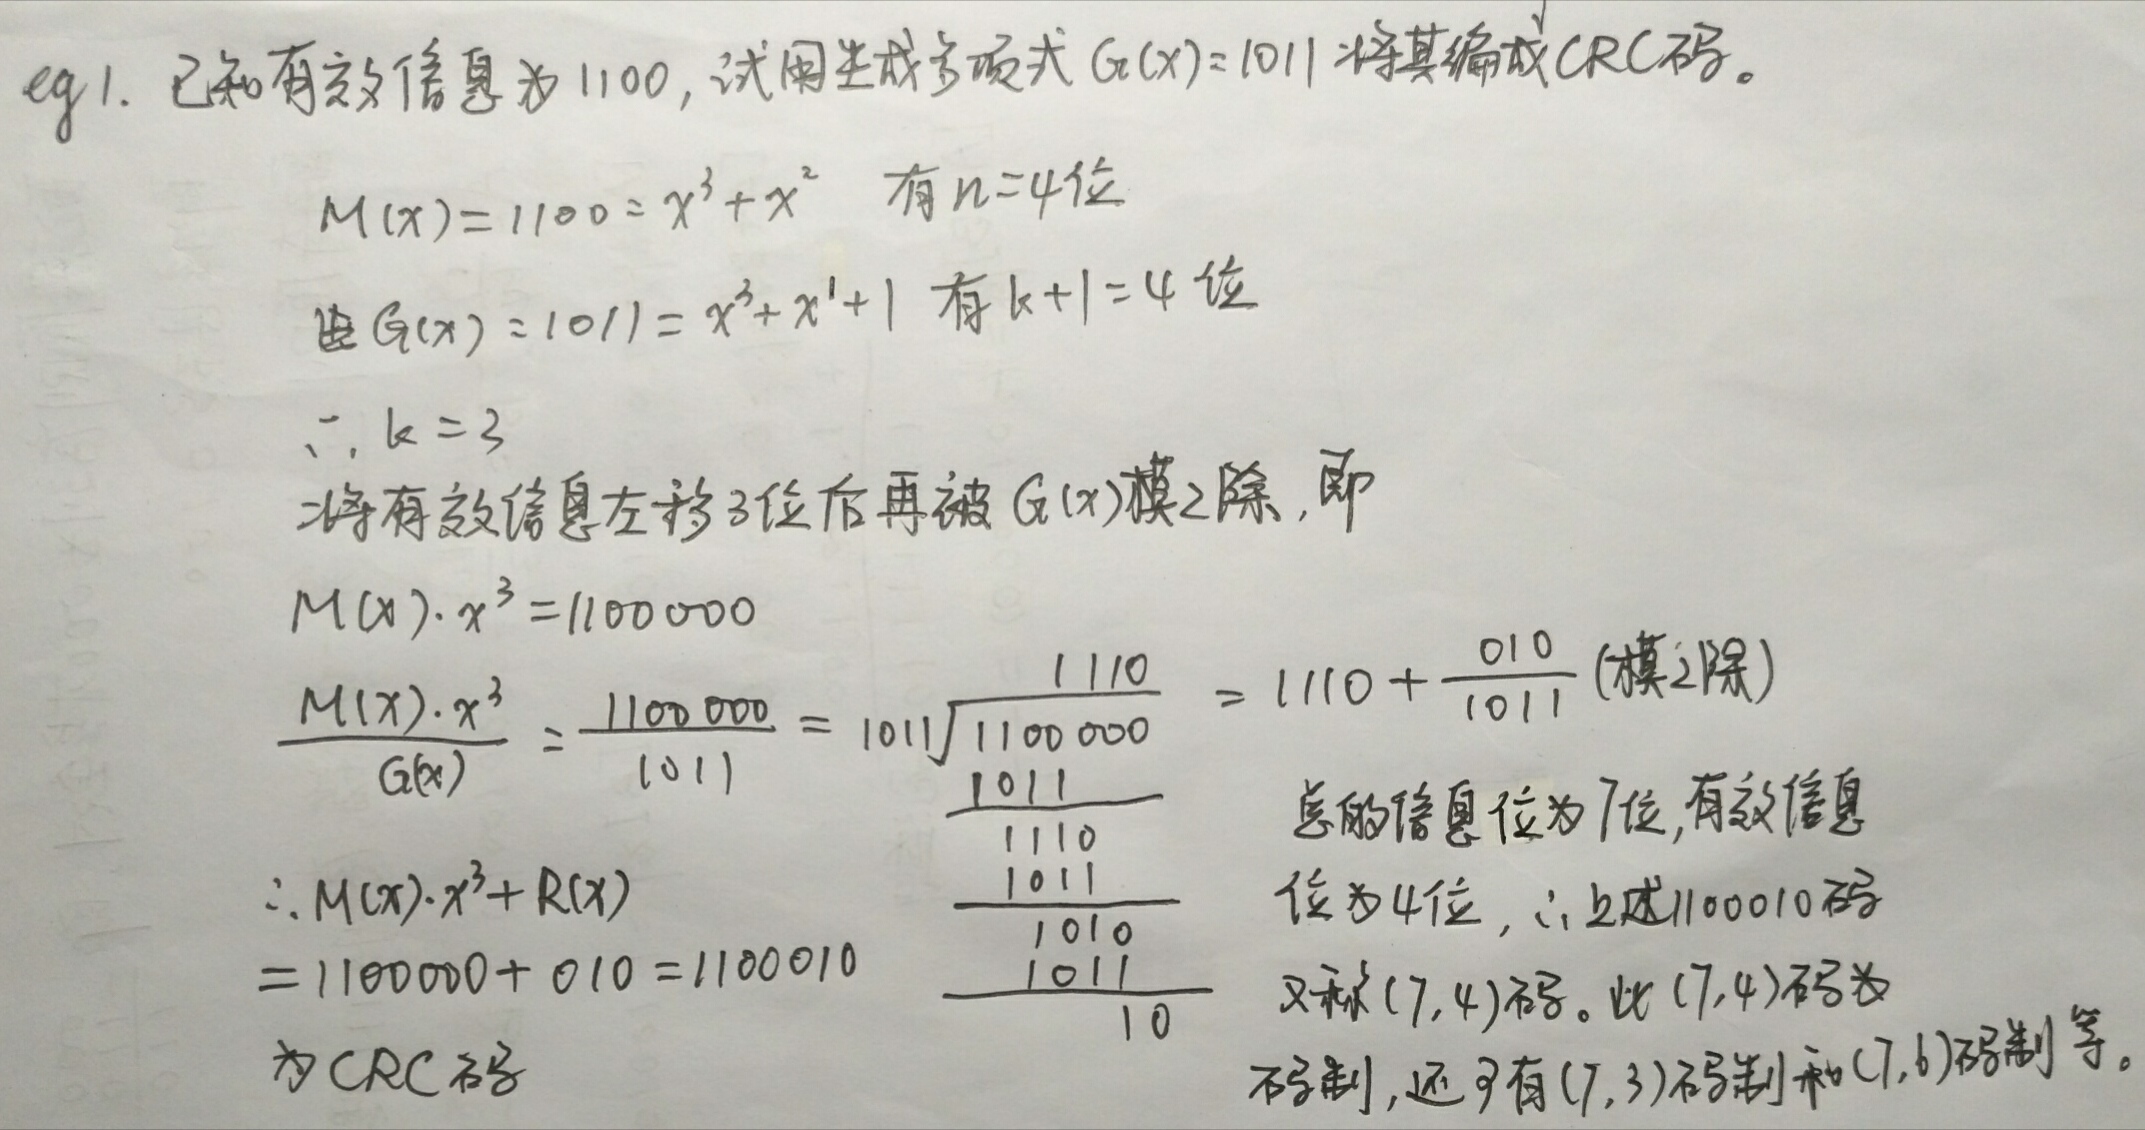 eg1. 已知有效信息为1100,试用生成多项式G(x)=1011将其编成CRC码。
M(x)=1100=x³+x² 有n=4位
由G(x)=1011=x³+x¹+1 有k+1=4位
∴k=3
将有效信息左移3位后再被G(x)模2除,即
M(x)·x³=1100000
M(x)·x³/G(x) = 1100 000/1011 = 1011√1100 000 = 1110+010/1011(模2除)
1110
1011
1110
1011
1010
1011
10
∴M(x)·x³+R(x)
=1100000+010=1100010
为CRC码
总的信息位为7位,有效信息
位为4位,∴上述1100010码
又称(7,4)码。此(7,4)码为
码制,还可有(7,3)码制和(7,6)码制等。